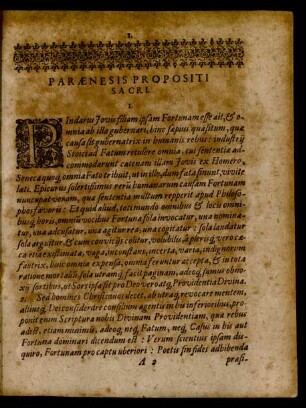 1.
PARÆNESIS PROPOSITI
SACRI.
I.
PIndarus Jovis filiam ipsam Fortunam esse ait, & o-
mnia ab illa gubernari, hinc sæpius quæsitum, quæ
causa sit gubernatrix in humanis rebus: industrij
Stoici ad Fatum retulere omnia, cui sententiæ ad-
commodarunt catenam illam Jovis ex Homero,
Seneca quoq; omnia Fato tribuit, ut in illo, dum fata sinunt, vivite
læti. Epicurus solertissimus rerū humanarum causam Fortunam
nuncupat venam, quæ sententia multum repperit apud Philoso-
phos favoris: Et quid aliud, toto mundo omnibus & locis omnib-
usq; horis, omniū vocibus Fortuna sola invocatur, una nomina-
tur, una accusatur, una agitur rea, una cogitatur: sola landatur
sola arguitur, & cum convicijs colitur, volubilis, à plerisq; verò cæ-
ca etiā existimata, vaga, inconstans, incerta, varia, indignorum
fautrix, huic omnia expensa, omnia feruntur accepta, & in tota
ratione mortaliū sola utramq; facit paginam, adeoq; sumus obno-
xij sortibus, ut Sors ipsa sit pro Deo vero atq; Providentia Divina.
2. Sed homines Christianos decet, ab utraq; revocare mentem,
aliumq; Deī considerare consiliorum agentium his inferioribus, pro-
ponit enim Scriptura nobis Divinam Providentiam, qua rebus
adest, etiam minimis, adeoq; neq; Fatum, neq; Casus in his aut
Fortuna dominari dicendum est: Verum scientius ipsam dis-
quiro, Fortunam pro captu uberiori: Poetis sin fides adhibenda
A 2 præsi-